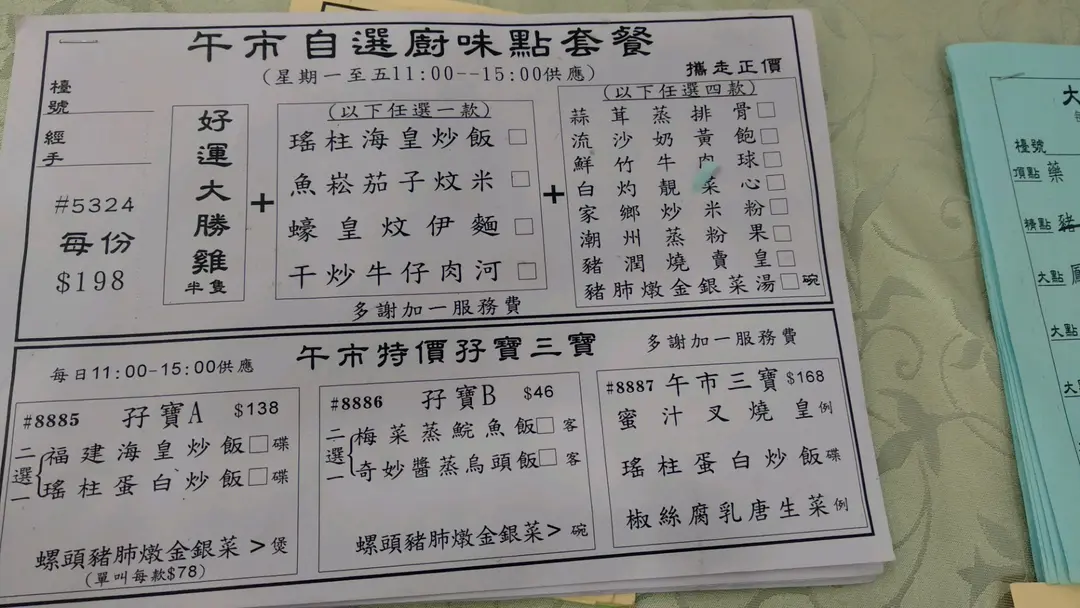 午市自選廚味點套餐
(星期一至五11:00--15:00供應)
攜走正價
檯號
經手
#5324
每份
$198
好運大勝雞
半隻
+
(以下任選一款)
瑤柱海皇炒飯□
魚崧茄子炆米□
蠔皇炆伊麵□
干炒牛仔肉河□
+
(以下任選四款)
蒜茸蒸排骨□
流沙奶黃飽□
鮮竹牛肉球□
白灼靚菜心□
家鄉炒米粉□
潮州蒸粉果□
豬潤燒賣皇□
豬肺燉金銀菜湯□碗
多謝加一服務費
每日11:00-15:00供應
午市特價孖寶三寶
多謝加一服務費
#8885 孖寶A $138
二選一
福建海皇炒飯□碟
瑤柱蛋白炒飯□碟
螺頭豬肺燉金銀菜>煲
(單叫每款$78)
#8886 孖寶B $46
二選一
梅菜蒸鯇魚飯□客
奇妙醬蒸烏頭飯□客
螺頭豬肺燉金銀菜>碗
#8887 午市三寶 $168
蜜汁叉燒皇例
瑤柱蛋白炒飯碟
椒絲腐乳唐生菜例
大
檯號
頂點 藥
精點 豬
大點
大點
大